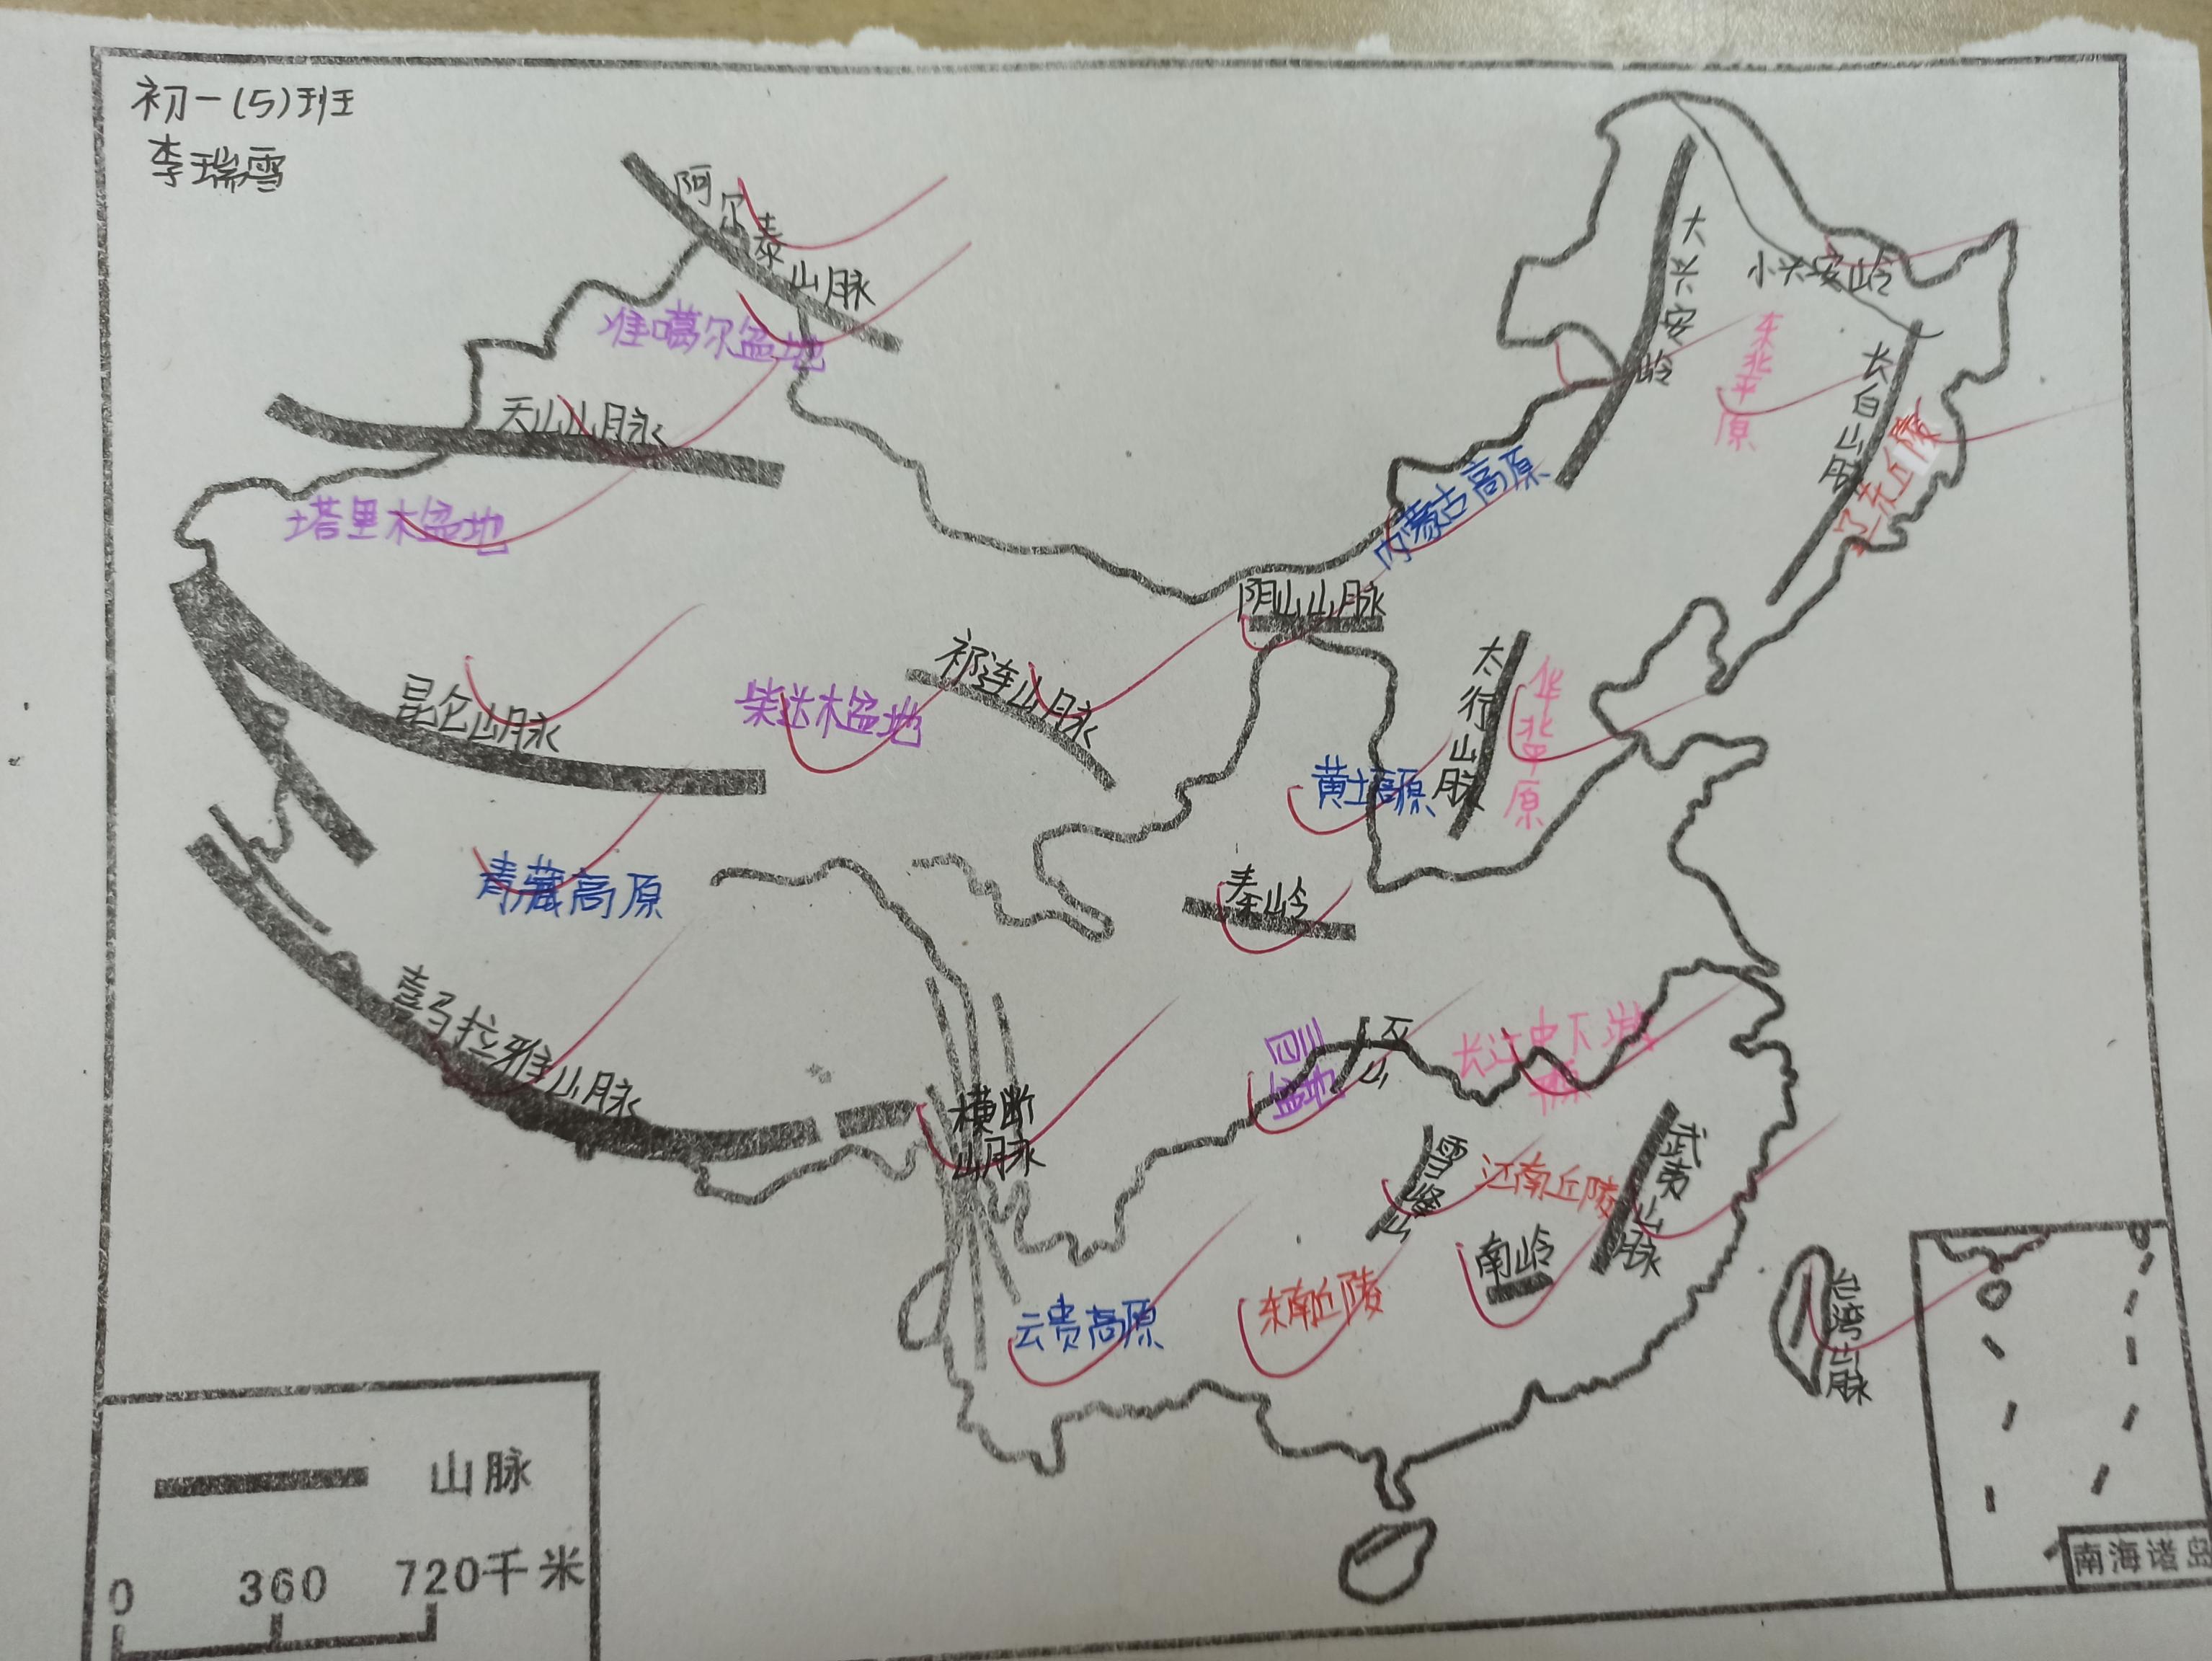 初一(5)班
李瑞雪
阿尔泰山脉
准噶尔盆地
天山山脉
塔里木盆地
大兴安岭
小兴安岭
东北平原
长白山脉
辽东丘陵
内蒙古高原
阴山山脉
祁连山脉
昆仑山脉
柴达木盆地
太行山脉
华北平原
黄土高原
青藏高原
秦岭
喜马拉雅山脉
横断
山脉
四川
盆地
巫山
长江中下游
平原
雪峰山
江南丘陵
武夷山脉
南岭
东南丘陵
云贵高原
台湾山脉
山脉
0 360 720千米
南海诸岛